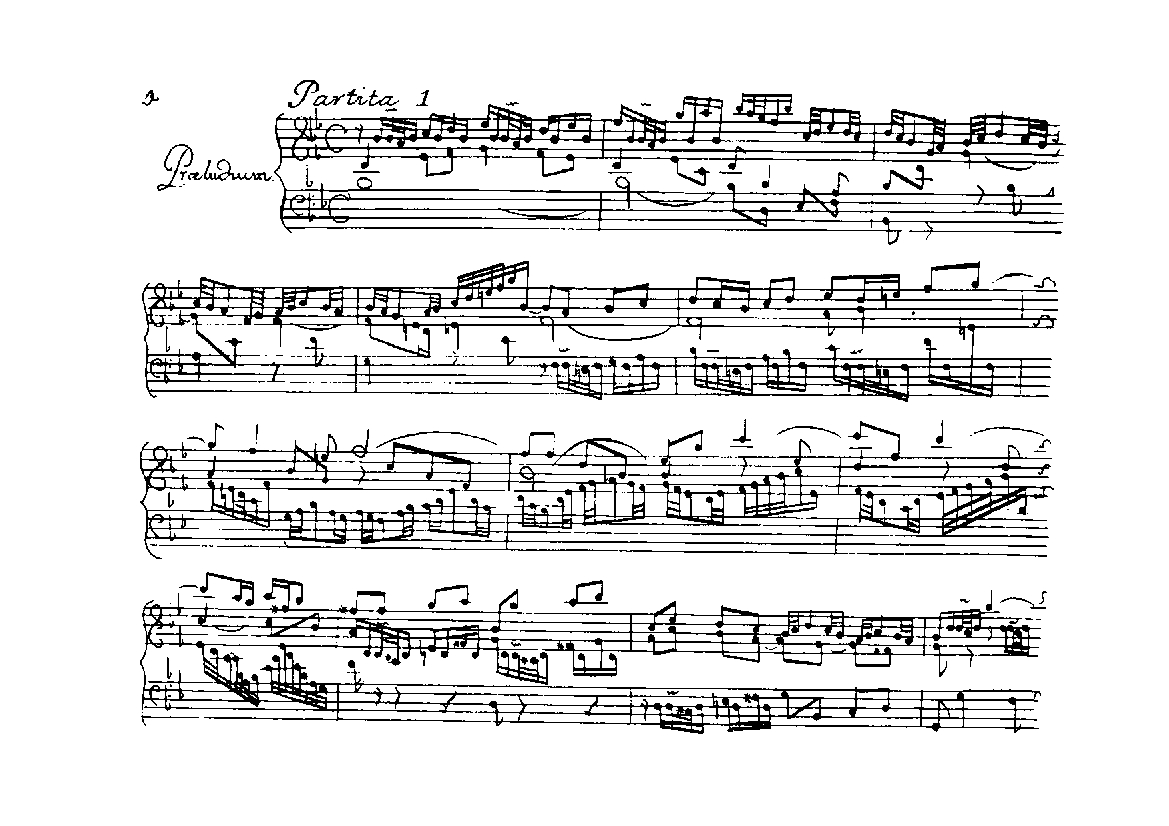 Partita 1
Præludium